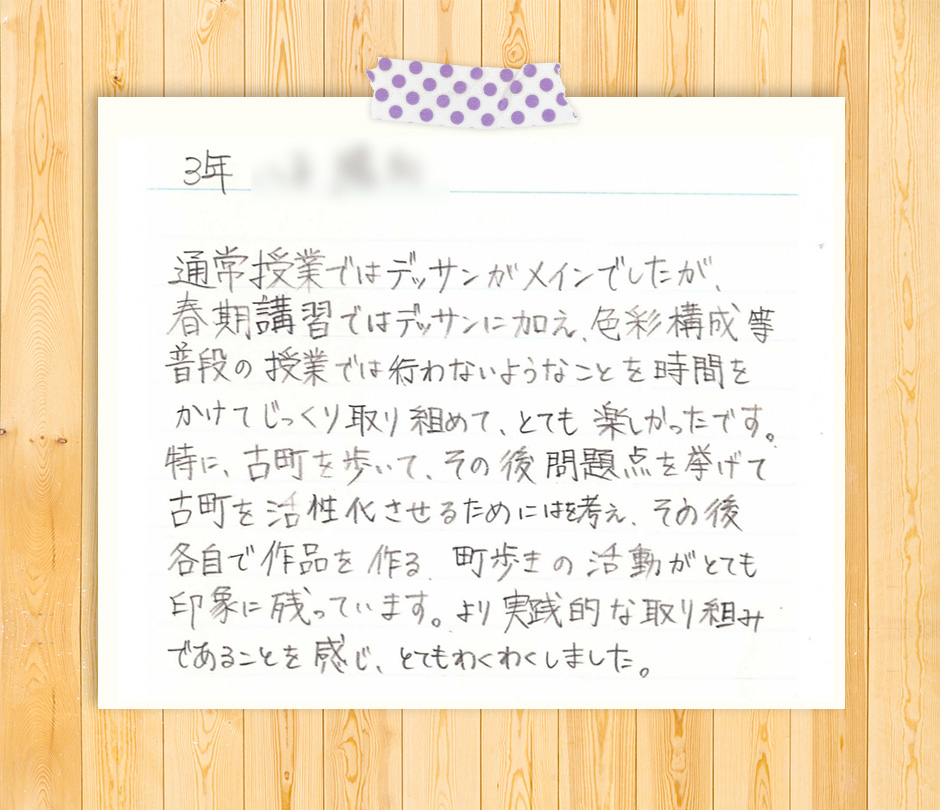 3年
通常授業ではデッサンがメインでしたが、
春期講習ではデッサンに加え、色彩構成等
普段の授業では行わないようなことを時間を
かけてじっくり取り組めて、とても楽しかったです。
特に、古町を歩いて、その後問題点を挙げて
古町を活性化させるためにはを考え、その後
各自で作品を作る、町歩きの活動がとても
印象に残っています。より実践的な取り組み
であることを感じ、とてもわくわくしました。